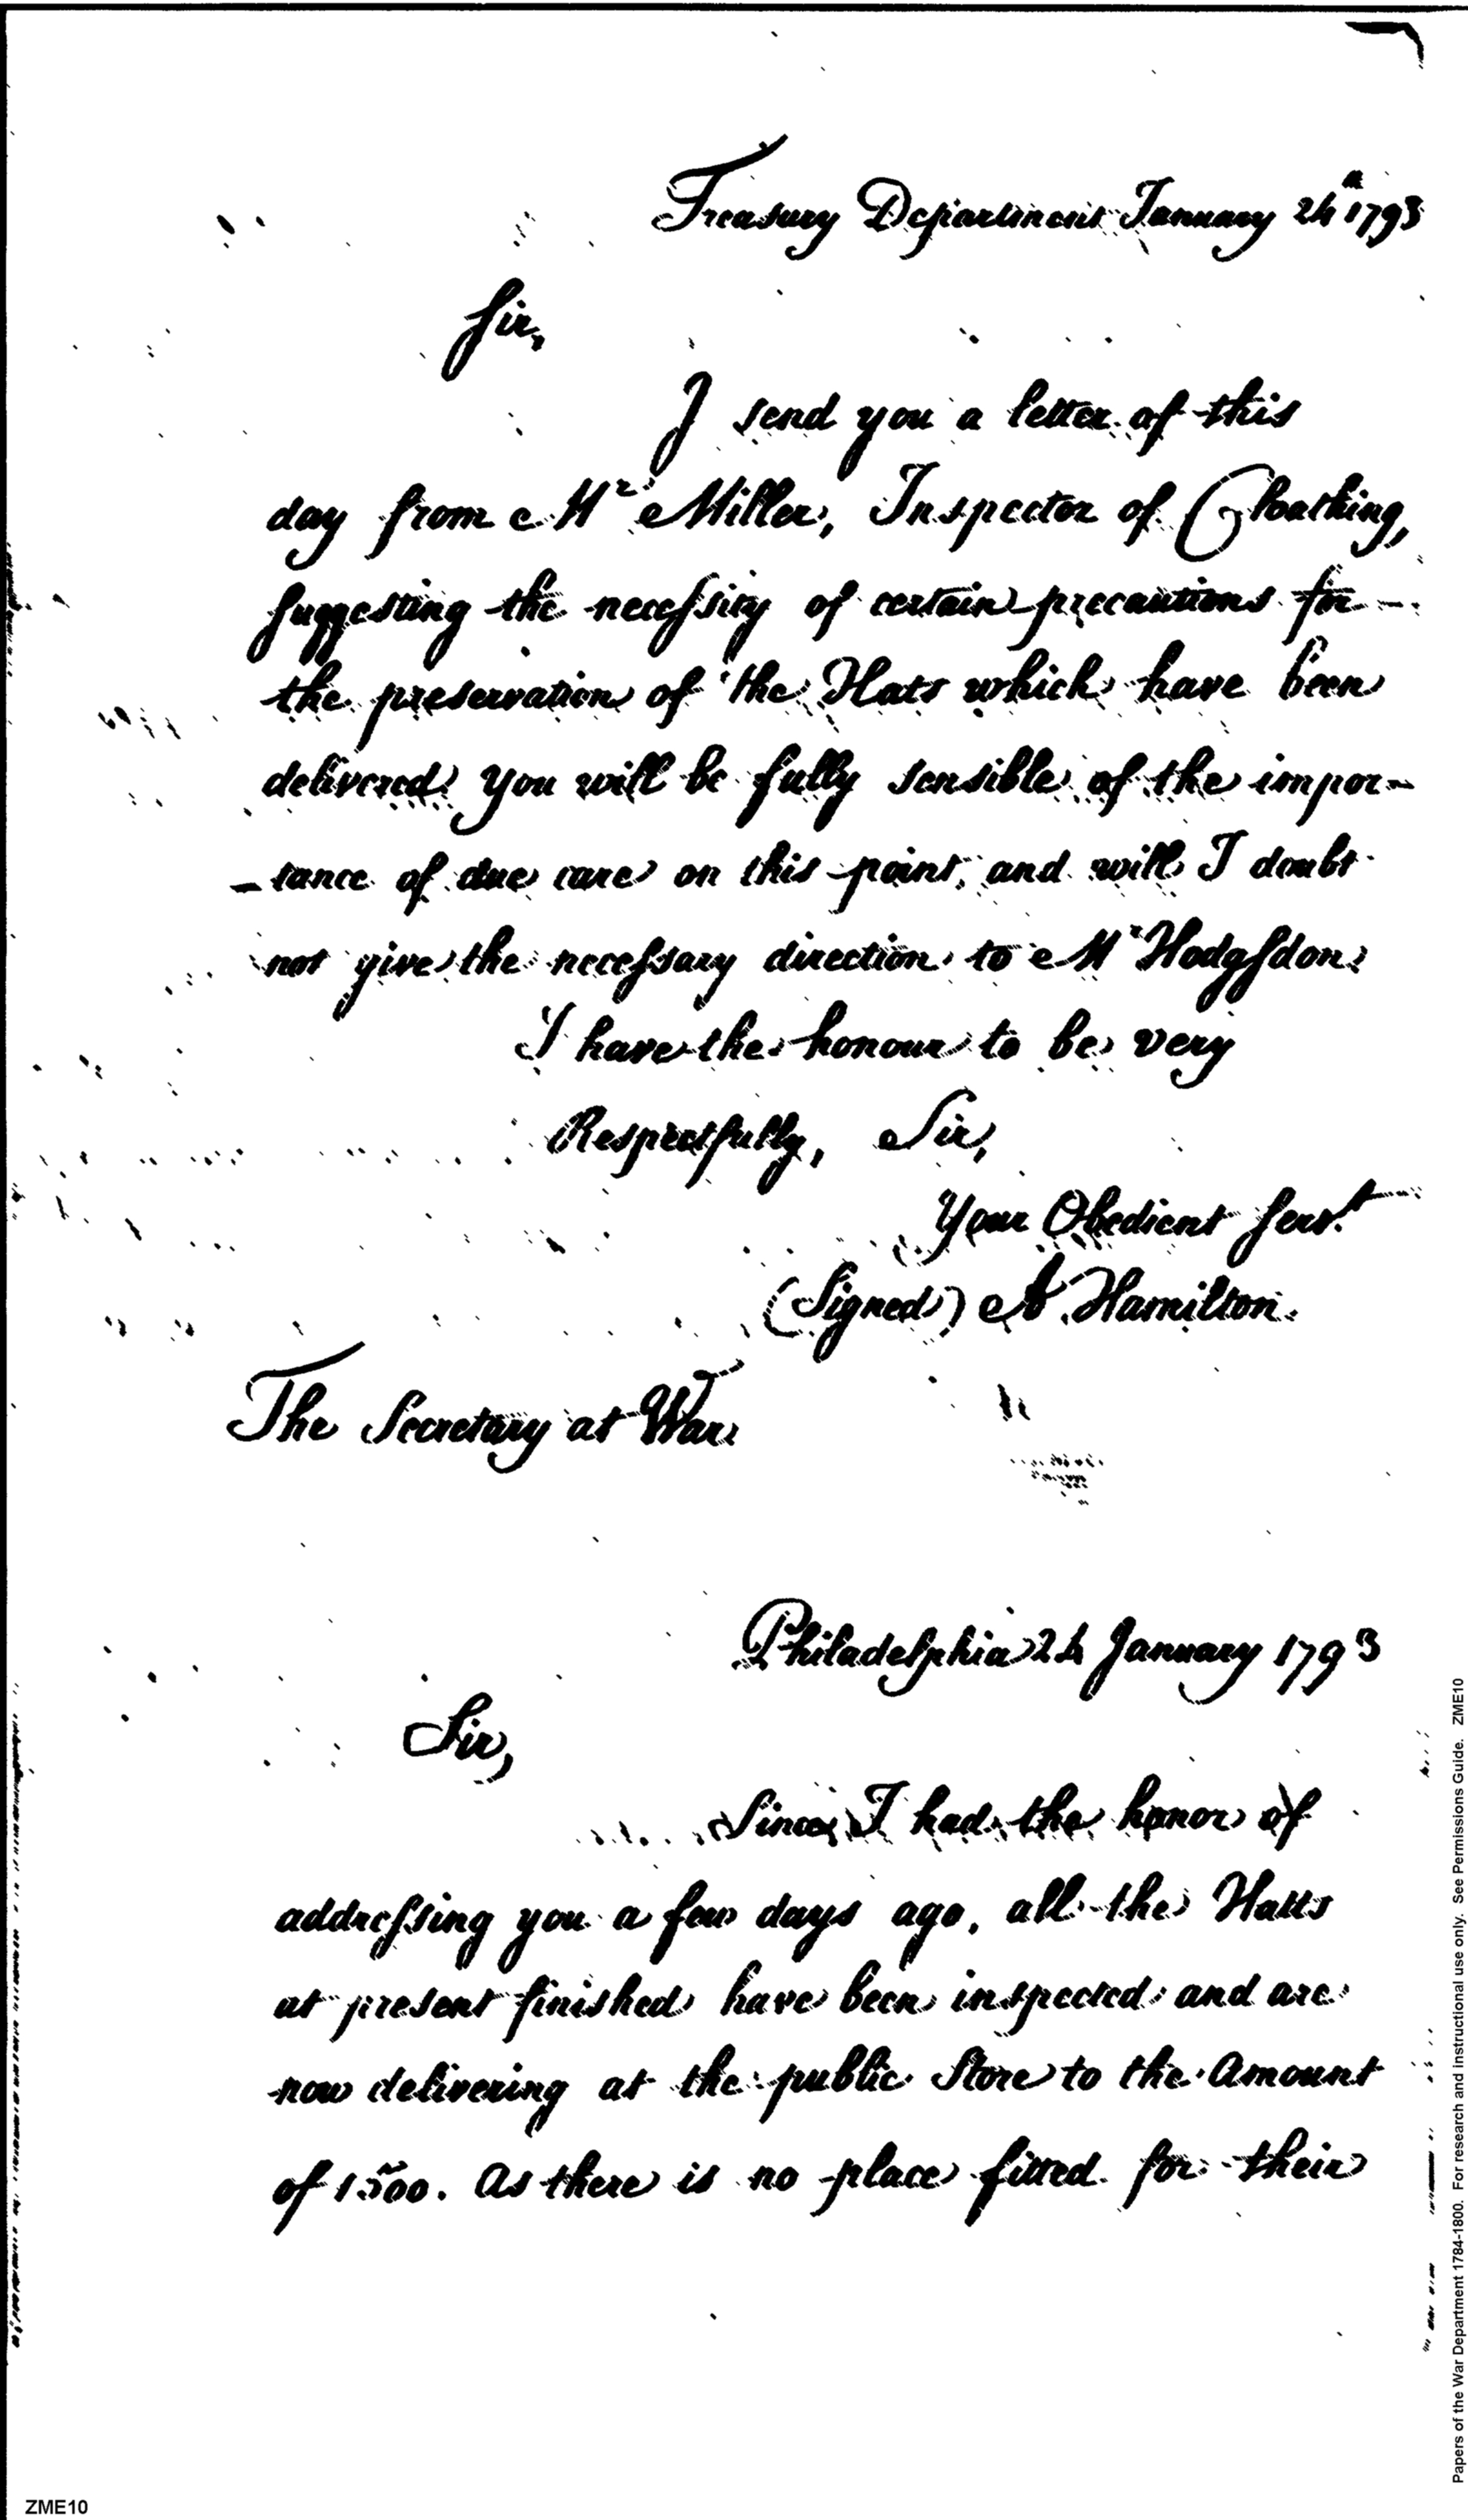 Treasury Department January 24th 1793
Sir,
I send you a letter of this
day from Mr Miller, Inspector of Cloathing,
suggesting the necessity of certain precautions for
the preservation of the Hats which have been
delivered. you will be fully sensible of the impor-
-tance of due care on this point, and will I doubt
not give the necessary direction to Mr Hodgsdon.
I have the honour to be very
Respectfully, Sir,
Your Obedient servt
(Signed) A. Hamilton.
The Secretary at War
Philadelphia 24 January 1793
Sir,
Since I had the honor of
addressing you a few days ago, all the Hatts
at present finished have been inspected and are
now delivering at the public Store to the Amount
of 1500. As there is no place fitted for their
Papers of the War Department 1784-1800. For research and instructional use only. See Permissions Guide. ZME10
ZME10